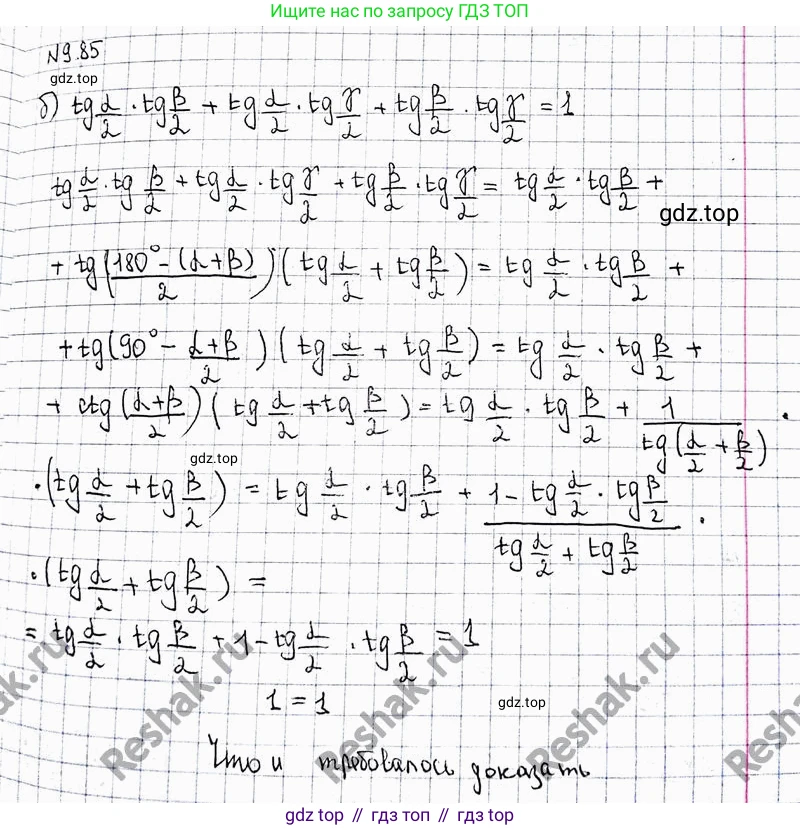 Ищите нас по запросу ГДЗ ТОП
№9.85
gdz.top
б) tg α/2 · tg β/2 + tg α/2 · tg γ/2 + tg β/2 · tg γ/2 = 1
tg α/2 · tg β/2 + tg α/2 · tg γ/2 + tg β/2 · tg γ/2 = tg α/2 · tg β/2 +
gdz.top
+ tg (180° - (α+β)/2) (tg α/2 + tg β/2) = tg α/2 · tg β/2 +
+ tg (90° - α+β/2) (tg α/2 + tg β/2) = tg α/2 · tg β/2 +
+ ctg (α+β/2) (tg α/2 + tg β/2) = tg α/2 · tg β/2 + 1/tg(α/2 + β/2) ·
gdz.top
· (tg α/2 + tg β/2) = tg α/2 · tg β/2 + 1 - tg α/2 · tg β/2 / tg α/2 + tg β/2 ·
· (tg α/2 + tg β/2) =
= tg α/2 · tg β/2 + 1 - tg α/2 · tg β/2 = 1
1 = 1
gdz.top
Что и требовалось доказать
Reshak.ru
Reshak.ru
Reshak.ru
gdz.top